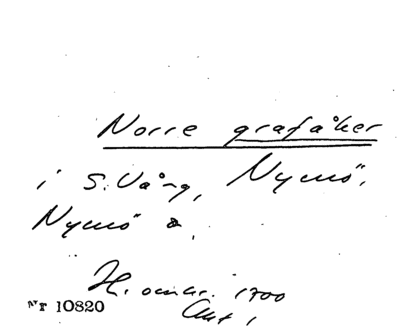 Norre grafåker
i S. Vång, Nymö,
Nymö s.
H. omkr. 1700
Akt 1
Nr 10820